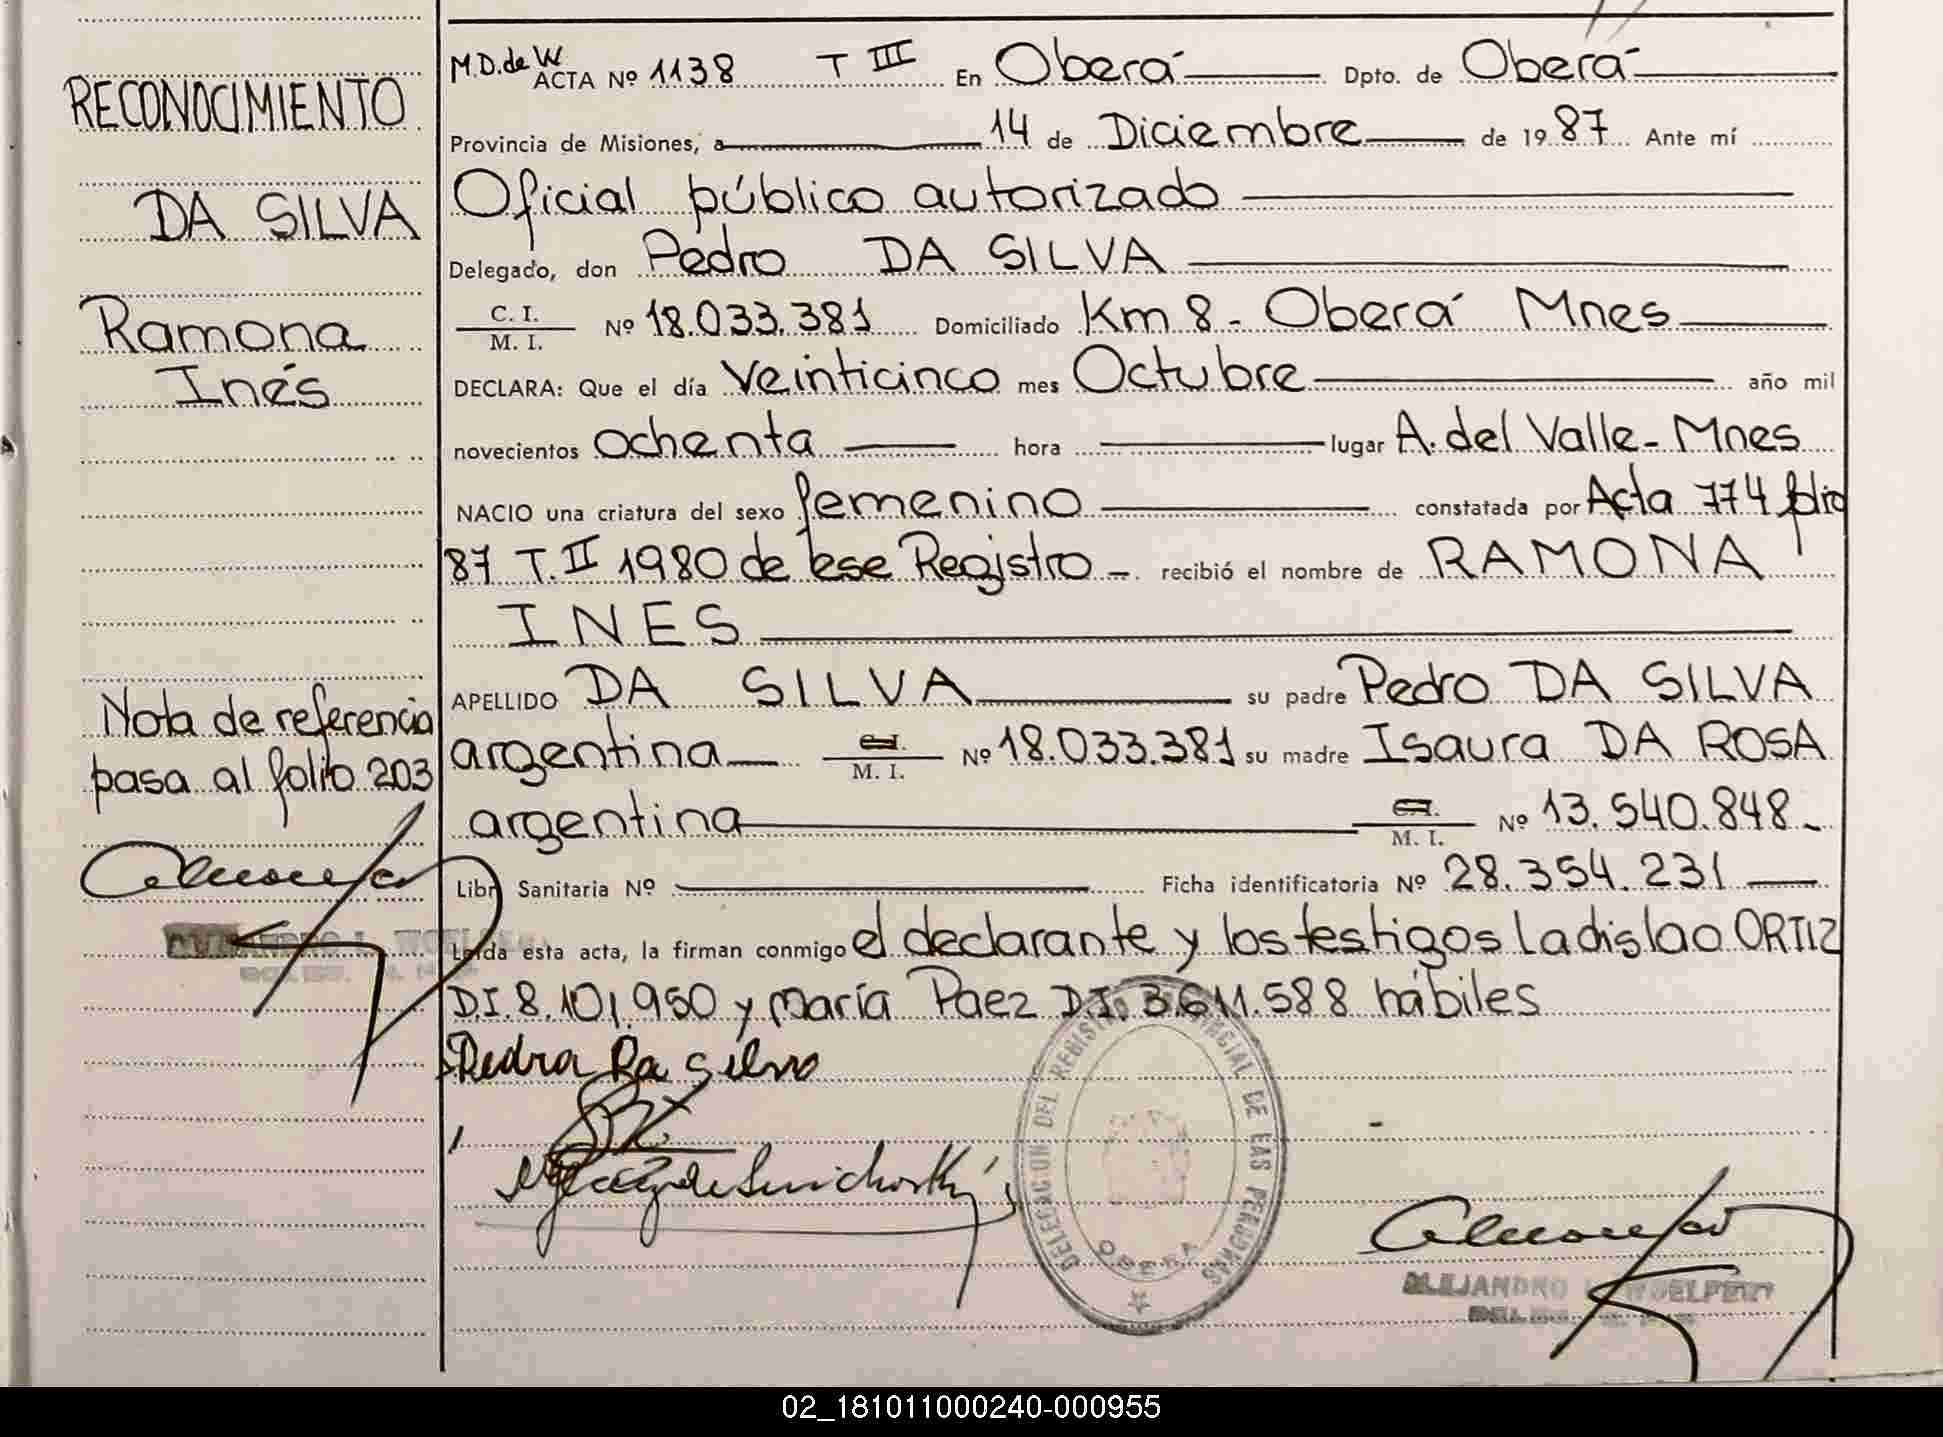 RECONOCIMIENTO
DA SILVA
Ramona
Inés
Nota de referencia
pasa al folio 203
M.D. de W
ACTA Nº 1138 T III En Oberá Dpto. de Oberá
Provincia de Misiones, a 14 de Diciembre de 1987 Ante mí
Oficial público autorizado
Delegado, don Pedro DA SILVA
C. I.
M. I. Nº 18.033.381 Domiciliado Km 8 - Oberá Mnes
DECLARA: Que el día Veinticinco mes Octubre año mil
novecientos ochenta hora lugar A. del Valle - Mnes
NACIO una criatura del sexo femenino constatada por Acta 774 folio
87 T. II 1980 de ese Registro - recibió el nombre de RAMONA
INES
APELLIDO DA SILVA su padre Pedro DA SILVA
argentina C. I. M. I. Nº 18.033.381 su madre Isaura DA ROSA
argentina C. I. M. I. Nº 13.540.848 -
Libr Sanitaria Nº Ficha identificatoria Nº 28.354.231
Leída esta acta, la firman conmigo el declarante y los testigos Ladislao ORTIZ
D.I. 8.101.950 y María Paez D.I. 3.611.588 hábiles
Pedro Da Silva
DELEGACION DEL REGISTRO PROVINCIAL DE LAS PERSONAS
OBERA
ALEJANDRO
02_181011000240-000955